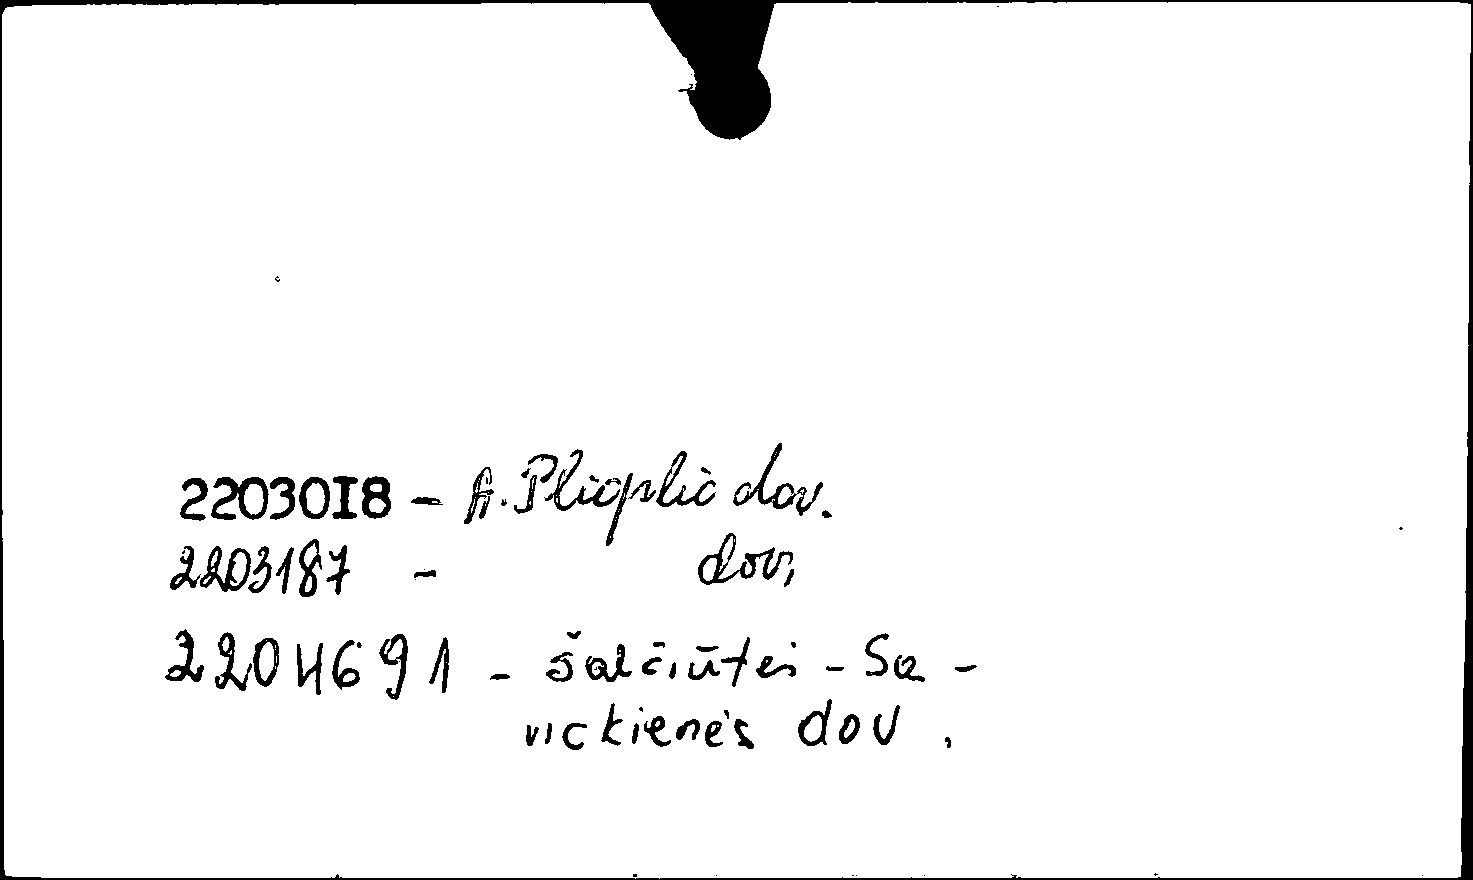 2203018 - A. Plioplio dov.
2203187 - dov.
2204691 - Šalčiūtės - Sa-
vickienės dov.